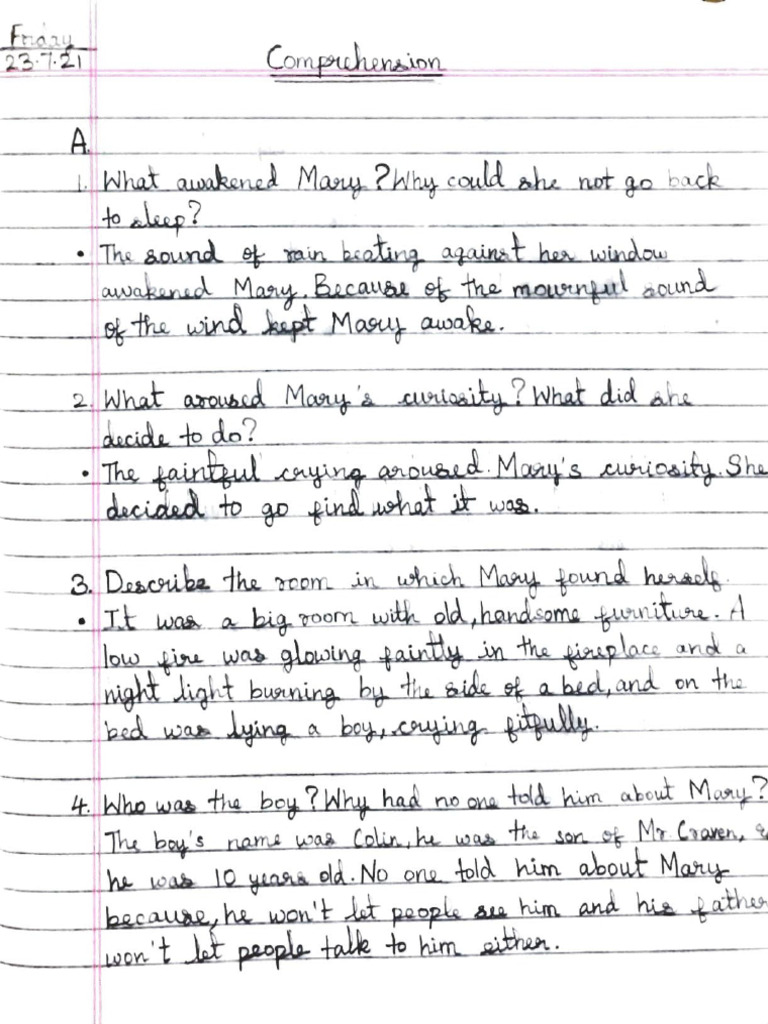 Friday
23.7.21
Comprehension
A.
1. What awakened Mary? Why could she not go back
to sleep?
• The sound of rain beating against her window
awakened Mary. Because of the mournful sound
of the wind kept Mary awake.
2. What aroused Mary's curiosity? What did she
decide to do?
• The faintful crying aroused. Mary's curiosity. She
decided to go find what it was.
3. Describe the room in which Mary found herself.
• It was a big room with old, handsome furniture. A
low fire was glowing faintly in the fireplace and a
night light burning by the side of a bed, and on the
bed was lying a boy, crying fitfully.
4. Who was the boy? Why had no one told him about Mary?
The boy's name was Colin, he was the son of Mr Craven, &
he was 10 years old. No one told him about Mary
because, he won't let people see him and his father
won't let people talk to him either.